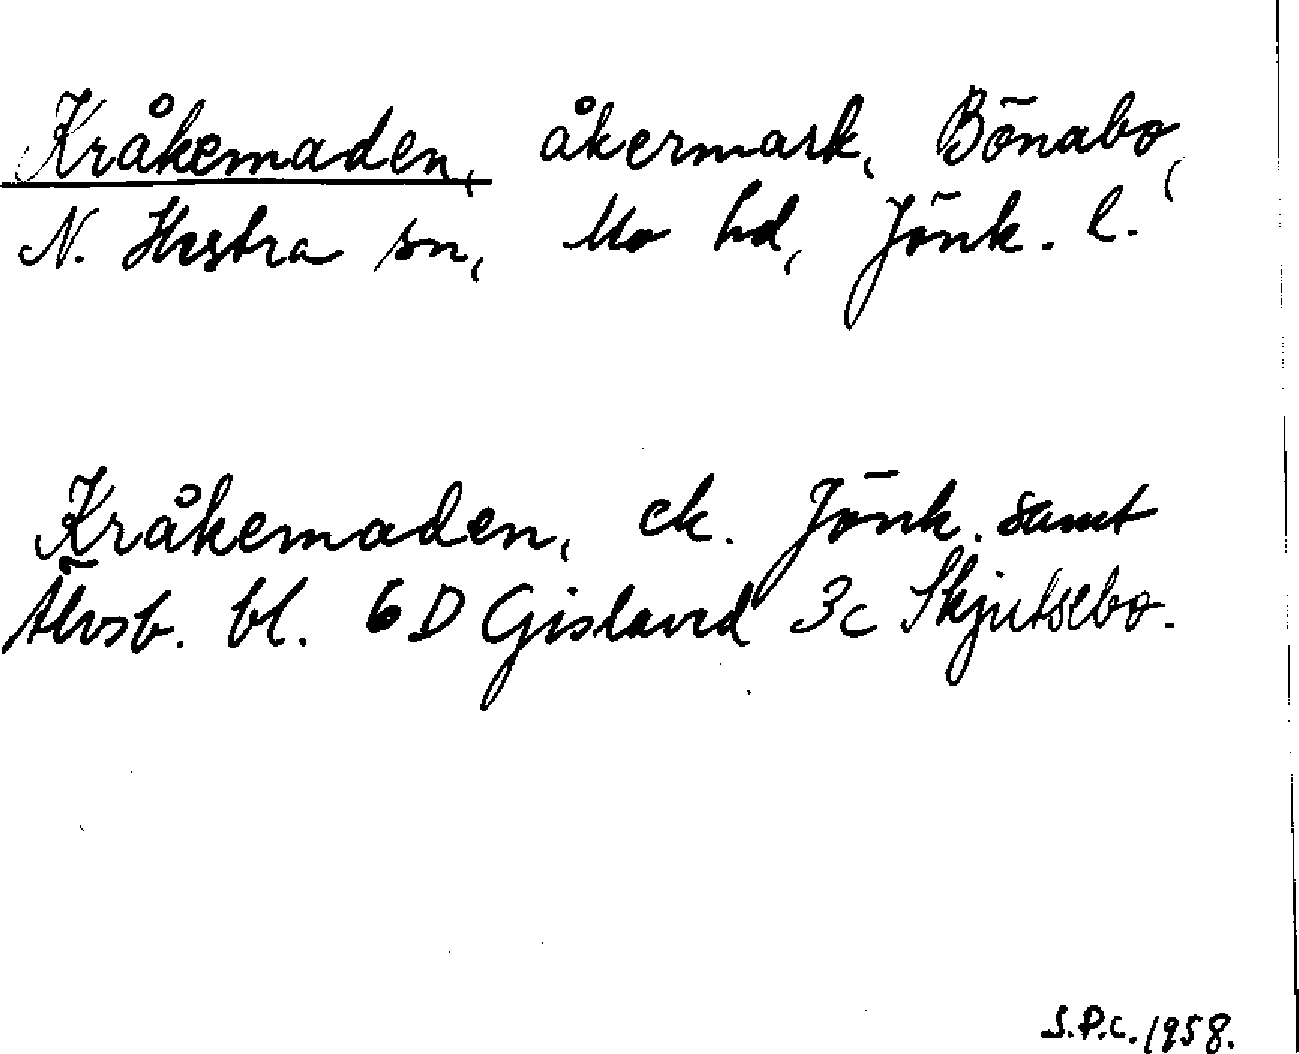 Kråkemaden, åkermark, Bönabo,
N. Hestra sn, Mo hd, Jönk. l.
Kråkemaden, ek. Jönk. samt
Älvsb. bl. 6 D Gislaved 3c Skjutsebo.
S.P.C. 1958.